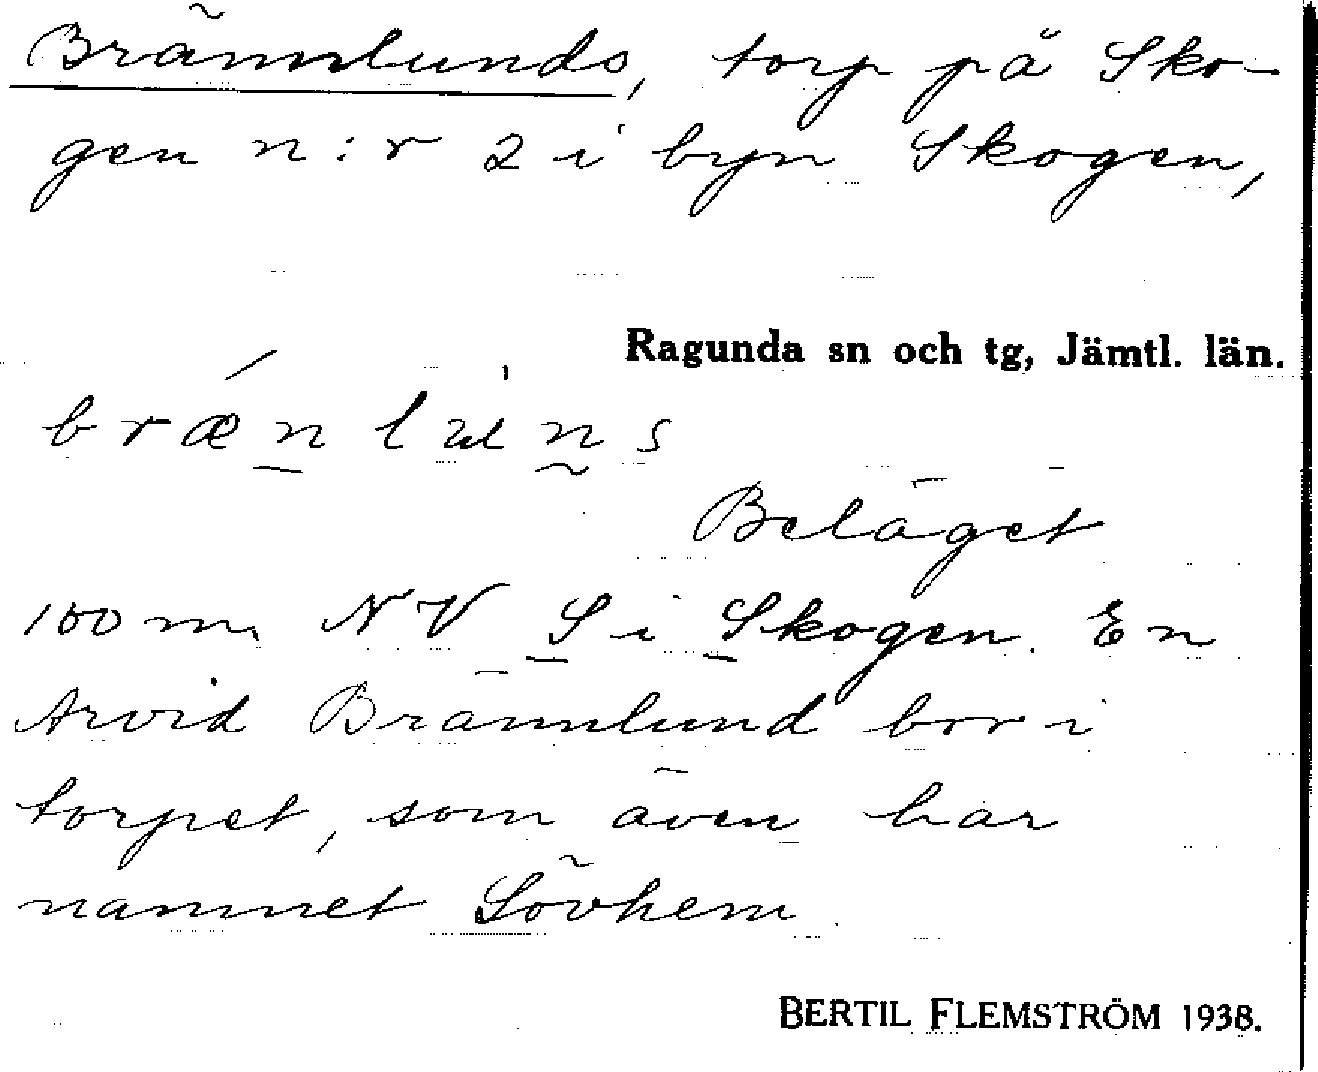 Brännlunds, torp på Sko-
gen n:r 2 i byn Skogen,
Ragunda sn och tg, Jämtl. län.
Beläget
100 m. NV S i Skogen. En
Arvid Brännlund bor i
torpet, som även har
namnet Lövhem.
BERTIL FLEMSTRÖM 1938.